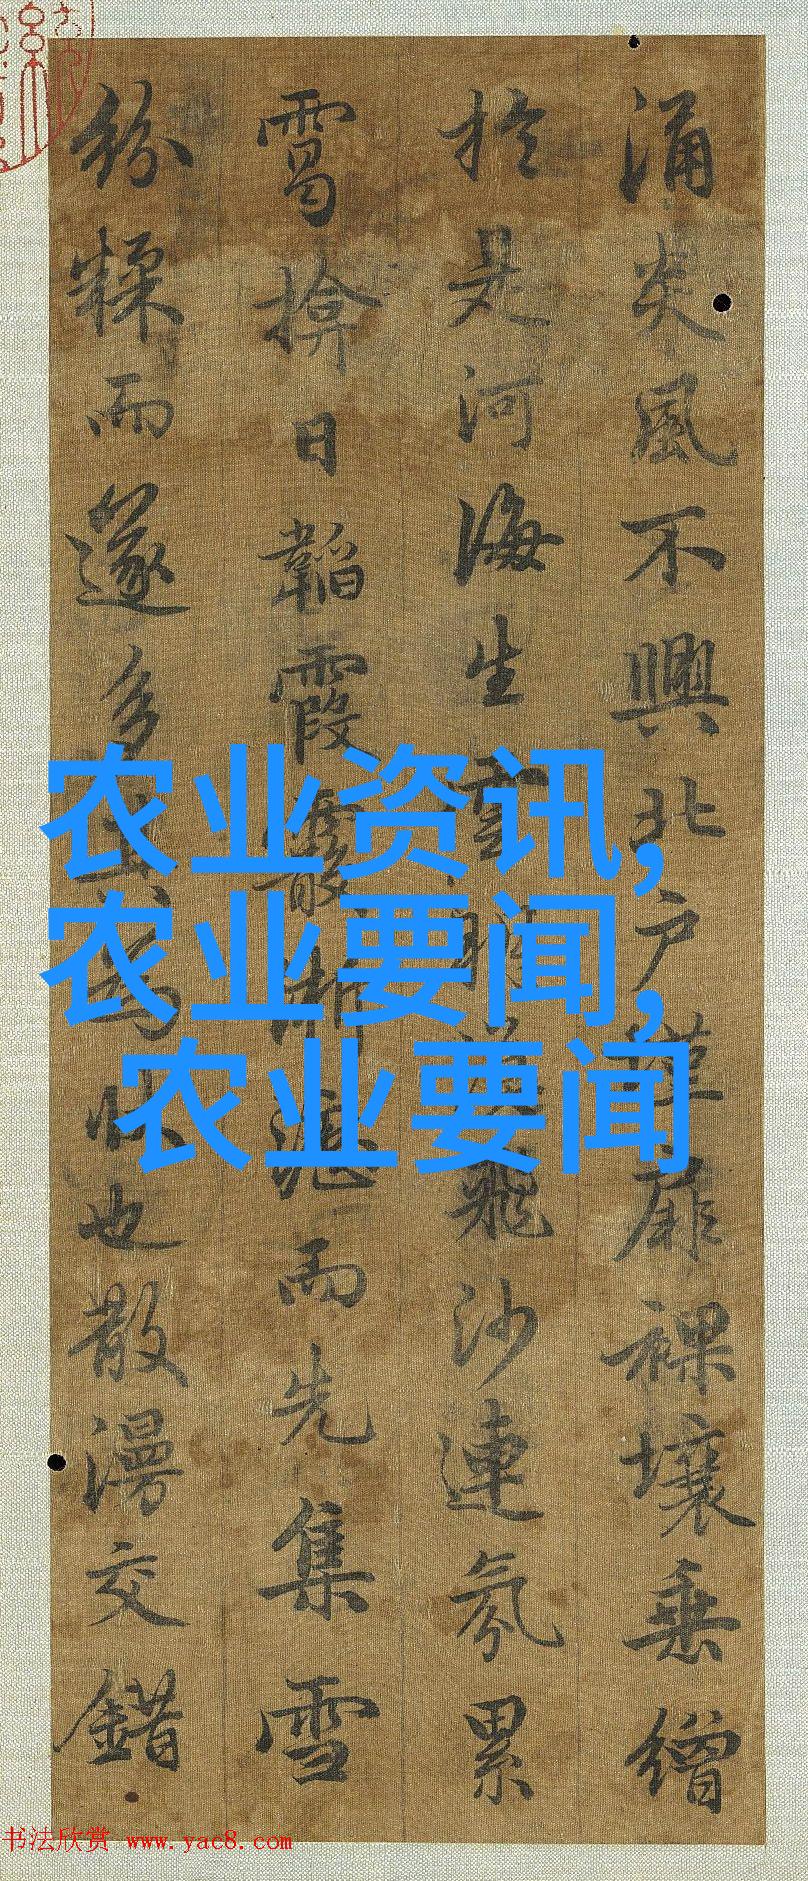 涌炎風不興北户墐扉裸壤垂繒
於是河海生雲朔漠飛沙連氛累
靄揜日韜霞霰淅瀝而先集雪
紛糅而遂多其為狀也散漫交錯
农业资讯,
农业要闻,
农业要闻
书法欣赏 www.yac8.com